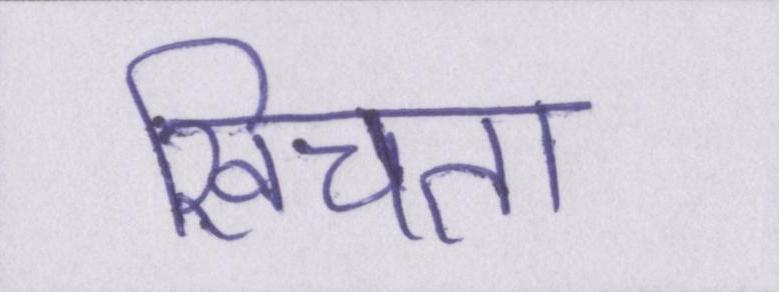 खिचता